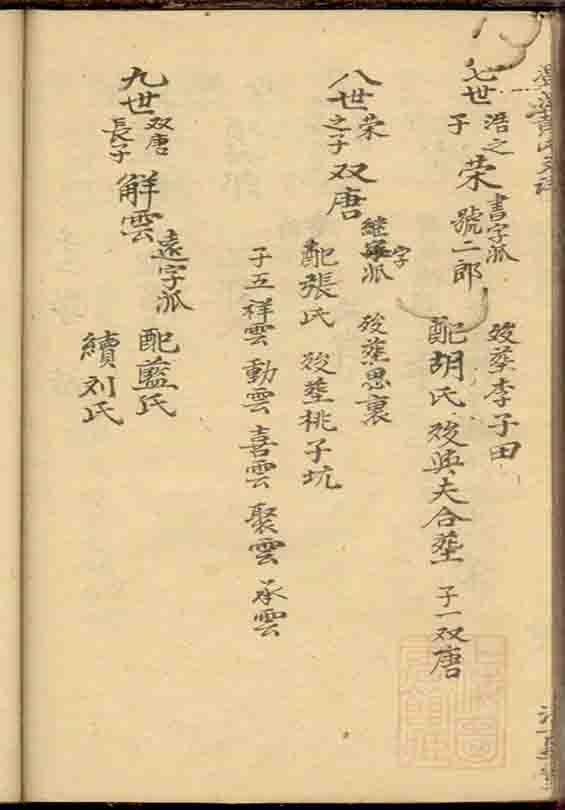 七世 浩之子 荣 書字派 號二郎 歿葬李子田
配胡氏 歿與夫合塟 子一双唐
八世 荣之子 双唐 継字派 歿塟思裏
配張氏 歿塟桃子坑
子五 祥雲 動雲 喜雲 聚雲 承雲
九世 双唐長子 觧雲 遠字派 配藍氏
續刘氏